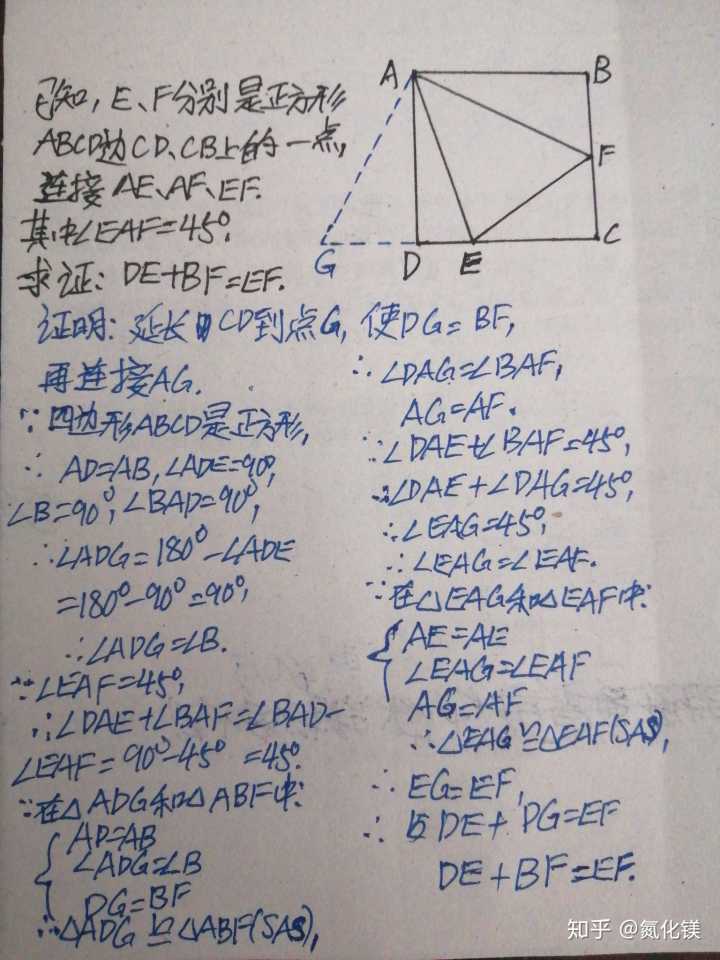 已知,E、F分别是正方形
ABCD边CD、CB上的一点,
连接AE、AF、EF.
其中∠EAF=45°.
求证:DE+BF=EF.
A
B
F
C
G
D
E
证明:延长CD到点G,使DG=BF,
再连接AG.
∵四边形ABCD是正方形,
∴AD=AB,∠ADE=90°,
∠B=90°,∠BAD=90°,
∴∠ADG=180°-∠ADE
=180°-90°=90°,
∴∠ADG=∠B.
∵∠EAF=45°,
∴∠DAE+∠BAF=∠BAD-
∠EAF=90°-45°=45°.
∵在△ADG和△ABF中:
AD=AB
∠ADG=∠B
DG=BF
∴△ADG≌△ABF(SAS),
∴∠DAG=∠BAF,
AG=AF.
∵∠DAE+∠BAF=45°,
∴∠DAE+∠DAG=45°,
∴∠EAG=45°,
∴∠EAG=∠EAF.
∵在△EAG和△EAF中:
AE=AE
∠EAG=∠EAF
AG=AF
∴△EAG≌△EAF(SAS),
∴EG=EF,
∴DE+DG=EF
DE+BF=EF.
知乎 @氮化镁